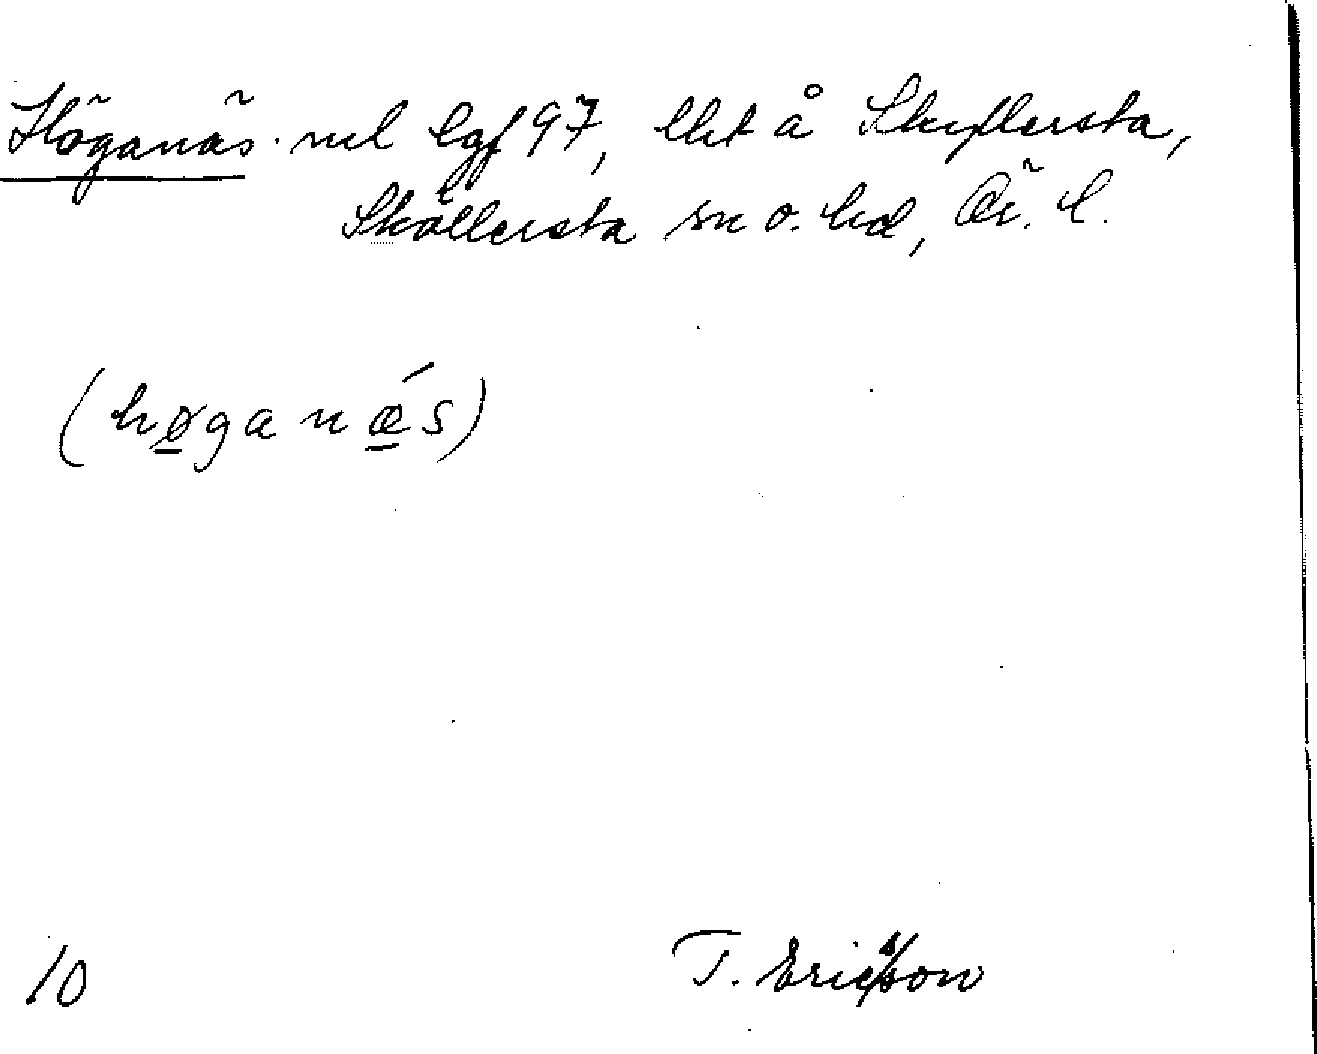 Höganäs nel lgf 97, lht å Skyllersta,
Sköllersta sn o. hd, Ör. l.
(høganǽs)
10
T. Ericsson